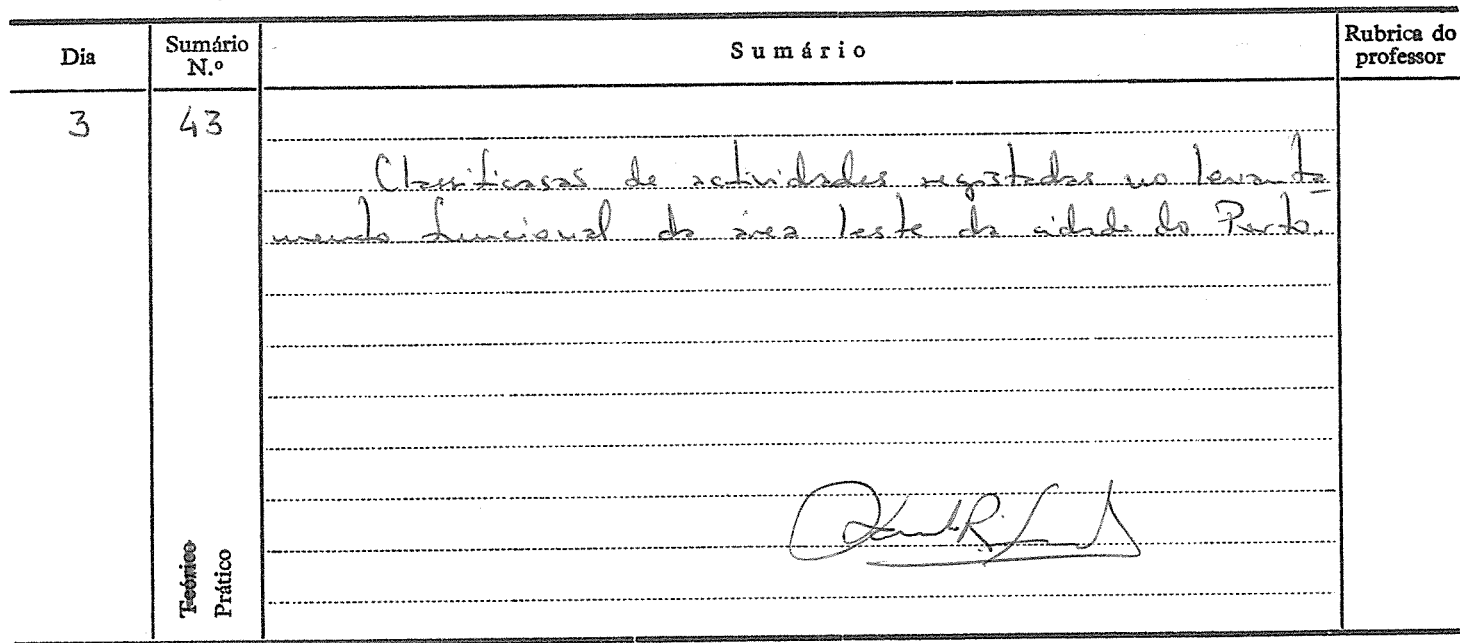 Dia
Sumário N.º
Sumário
Rubrica do professor
3
43
Classificação de actividades registadas no levanta
mento funcional da área leste da cidade do Porto.
Teórico
Prático